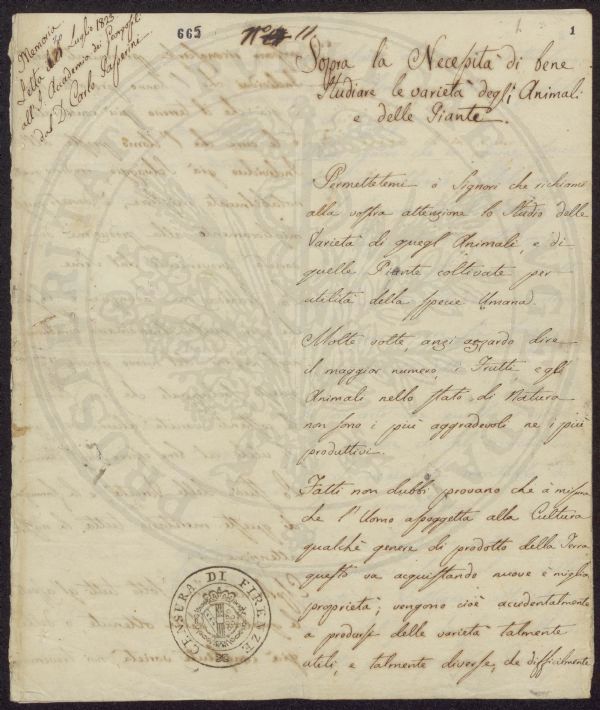 665
N.º 11.
1
Memoria
Letta Luglio 1823
all' I. Accademia dei Georgofili
dal D. Carlo Gasperini
Sopra la Necessità di bene
Studiare le varietà degli Animali
e delle Piante
Permettetemi o Signori che richiami
alla vostra attenzione lo Studio delle
Varietà di quegl' Animali, e di
quelle Piante coltivate per
utilità della specie Umana.
Molte volte, anzi azzardo dire
il maggior numero, i Frutti, e gli
Animali nello stato di Natura
non sono i piu aggradevoli ne i piu
produttivi.
Fatti non dubbi provano che à misura
che l'Uomo assoggetta alla Cultura
qualche genere di prodotto della Terra
questo va acquistando nuove e miglio
proprietà; vengono cioè accidentalmente
a prodursi delle varietà talmente
utili, e talmente diverse, che difficilmente
CENSURA DI FIRENZE